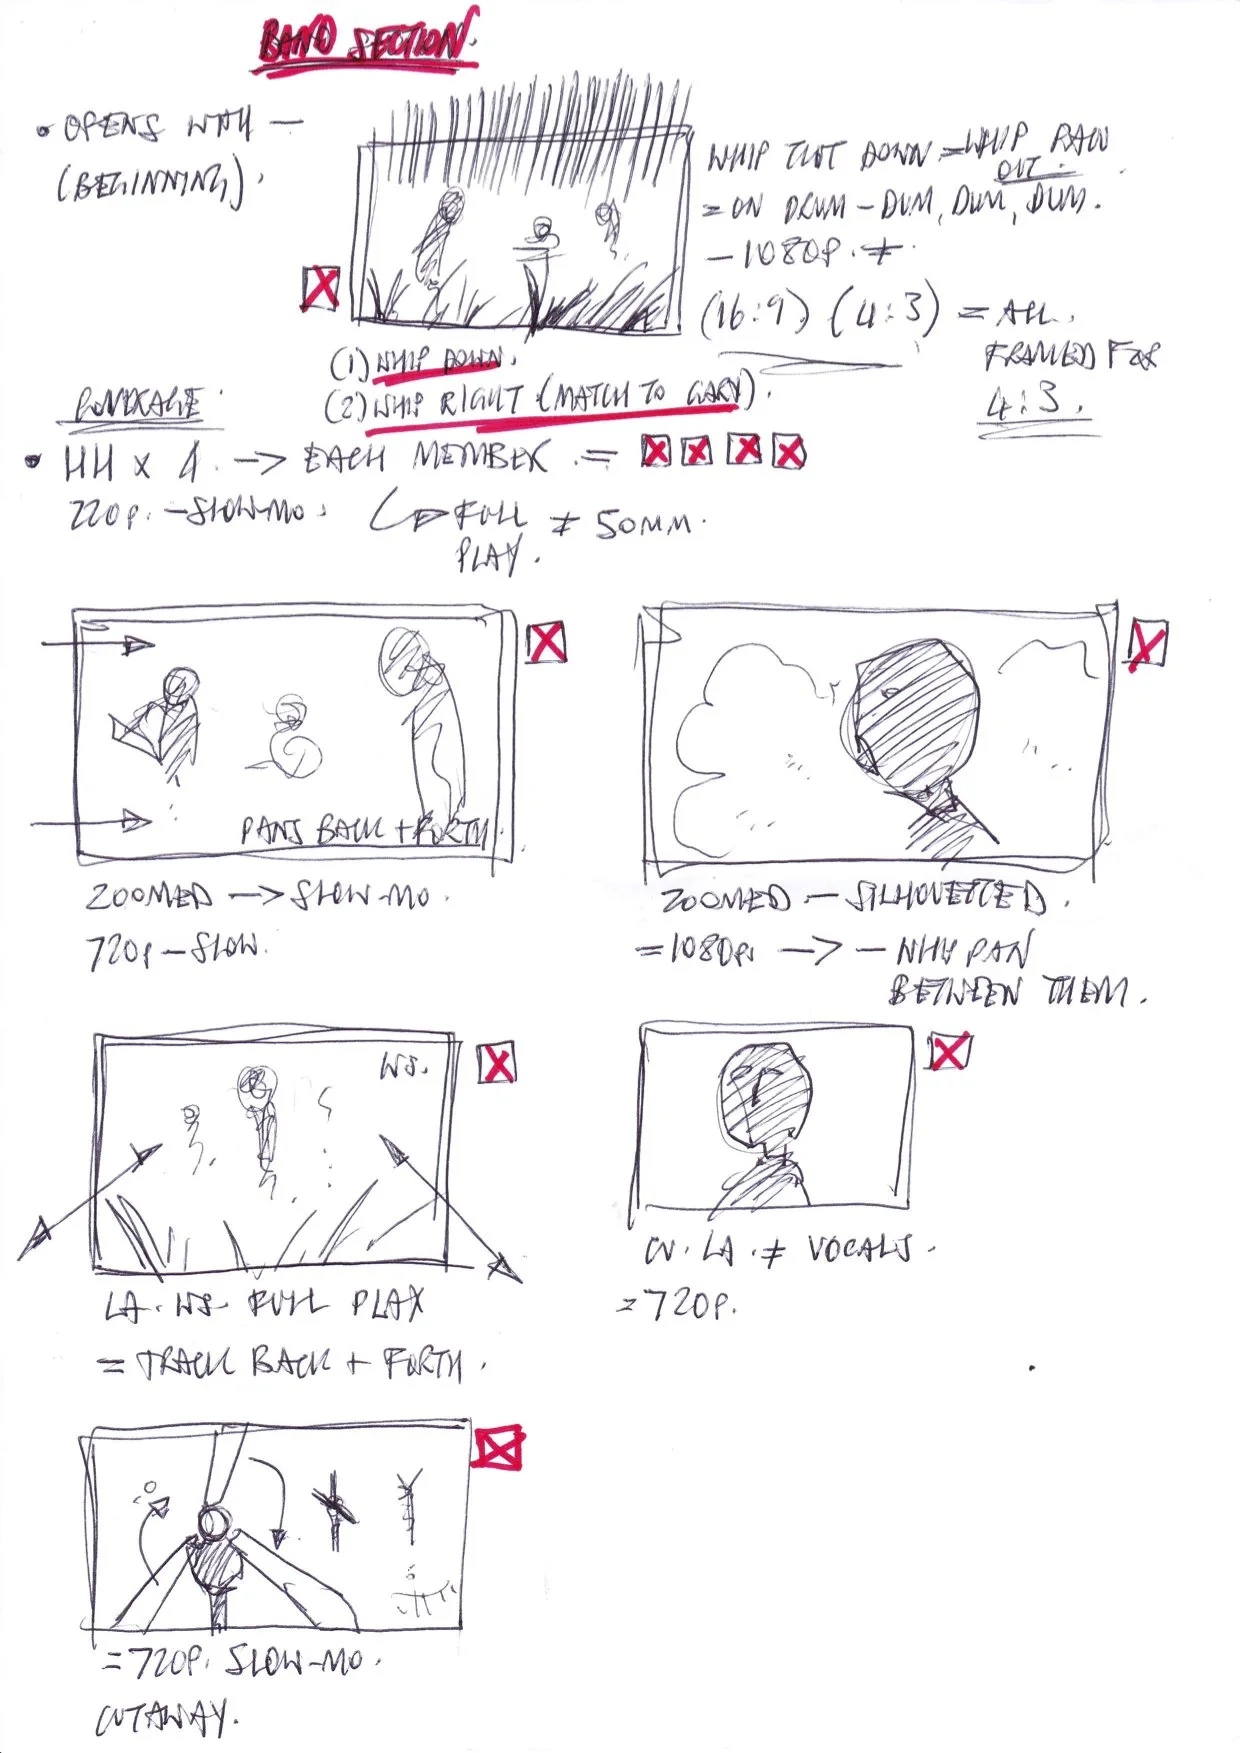 BAND SECTION.
• OPENS WITH —
(BEGINNING).
WHIP TILT DOWN = WHIP PAN
OUT.
= ON DRUM - DUM, DUM, DUM.
- 1080P. ≠
(16:9) (4:3) = ALL.
FRAMED FOR
4:3.
(1) WHIP DOWN.
(2) WHIP RIGHT (MATCH TO GARY).
COVERAGE
• HH x 4. -> EACH MEMBER. =
720p. - SLOW-MO. FULL ≠ 50MM.
PLAY.
PANS BACK + FORTH.
ZOOMED -> SLOW-MO.
720p - SLOW.
ZOOMED. - SILHOUETTED.
= 1080p. -> - WHIP PAN
BETWEEN THEM.
WS.
LA. WS. FULL PLAY
= TRACK BACK + FORTH.
CU. LA. ≠ VOCALS.
= 720P.
= 720P. SLOW-MO.
CUTAWAY.